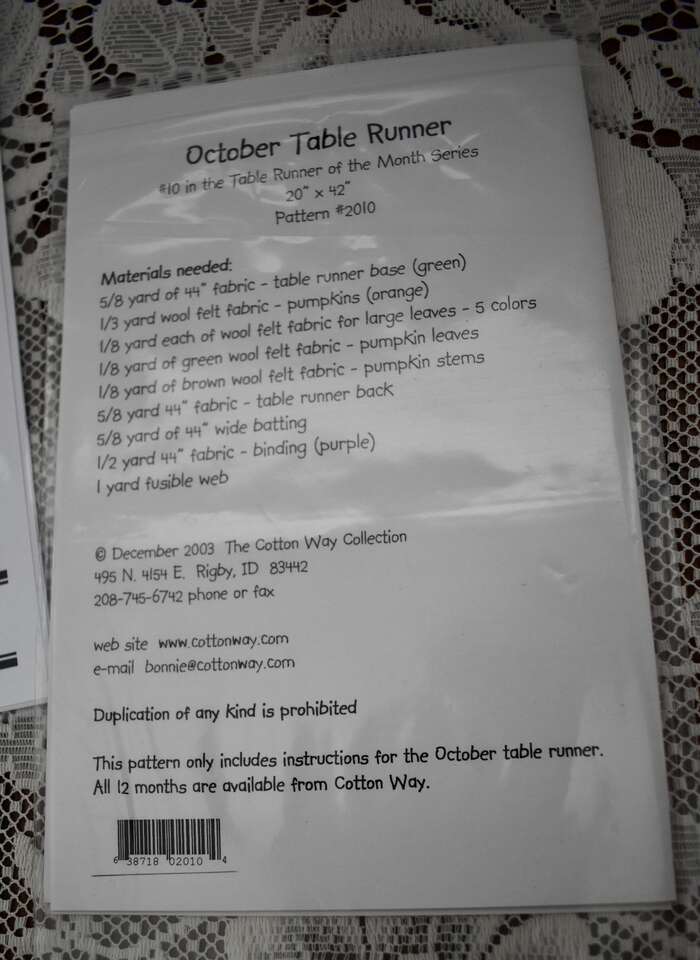 October Table Runner
#10 in the Table Runner of the Month Series
20" x 42"
Pattern #2010
Materials needed:
5/8 yard of 44" fabric - table runner base (green)
1/3 yard wool felt fabric - pumpkins (orange)
1/8 yard each of wool felt fabric for large leaves - 5 colors
1/8 yard of green wool felt fabric - pumpkin leaves
1/8 yard of brown wool felt fabric - pumpkin stems
5/8 yard 44" fabric - table runner back
5/8 yard of 44" wide batting
1/2 yard 44" fabric - binding (purple)
1 yard fusible web
© December 2003 The Cotton Way Collection
495 N. 4154 E. Rigby, ID 83442
208-745-6742 phone or fax
web site www.cottonway.com
e-mail bonnie@cottonway.com
Duplication of any kind is prohibited
This pattern only includes instructions for the October table runner.
All 12 months are available from Cotton Way.
6 38718 02010 4